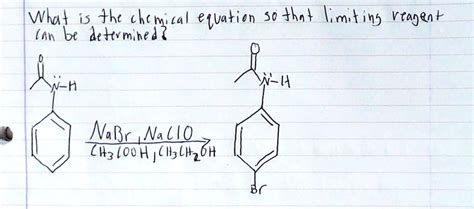 What is the chemical equation so that limiting reagent
can be determined?
O
O
N-H
N-H
NaBr, NaClO
CH3COOH, CH3CH2OH
Br